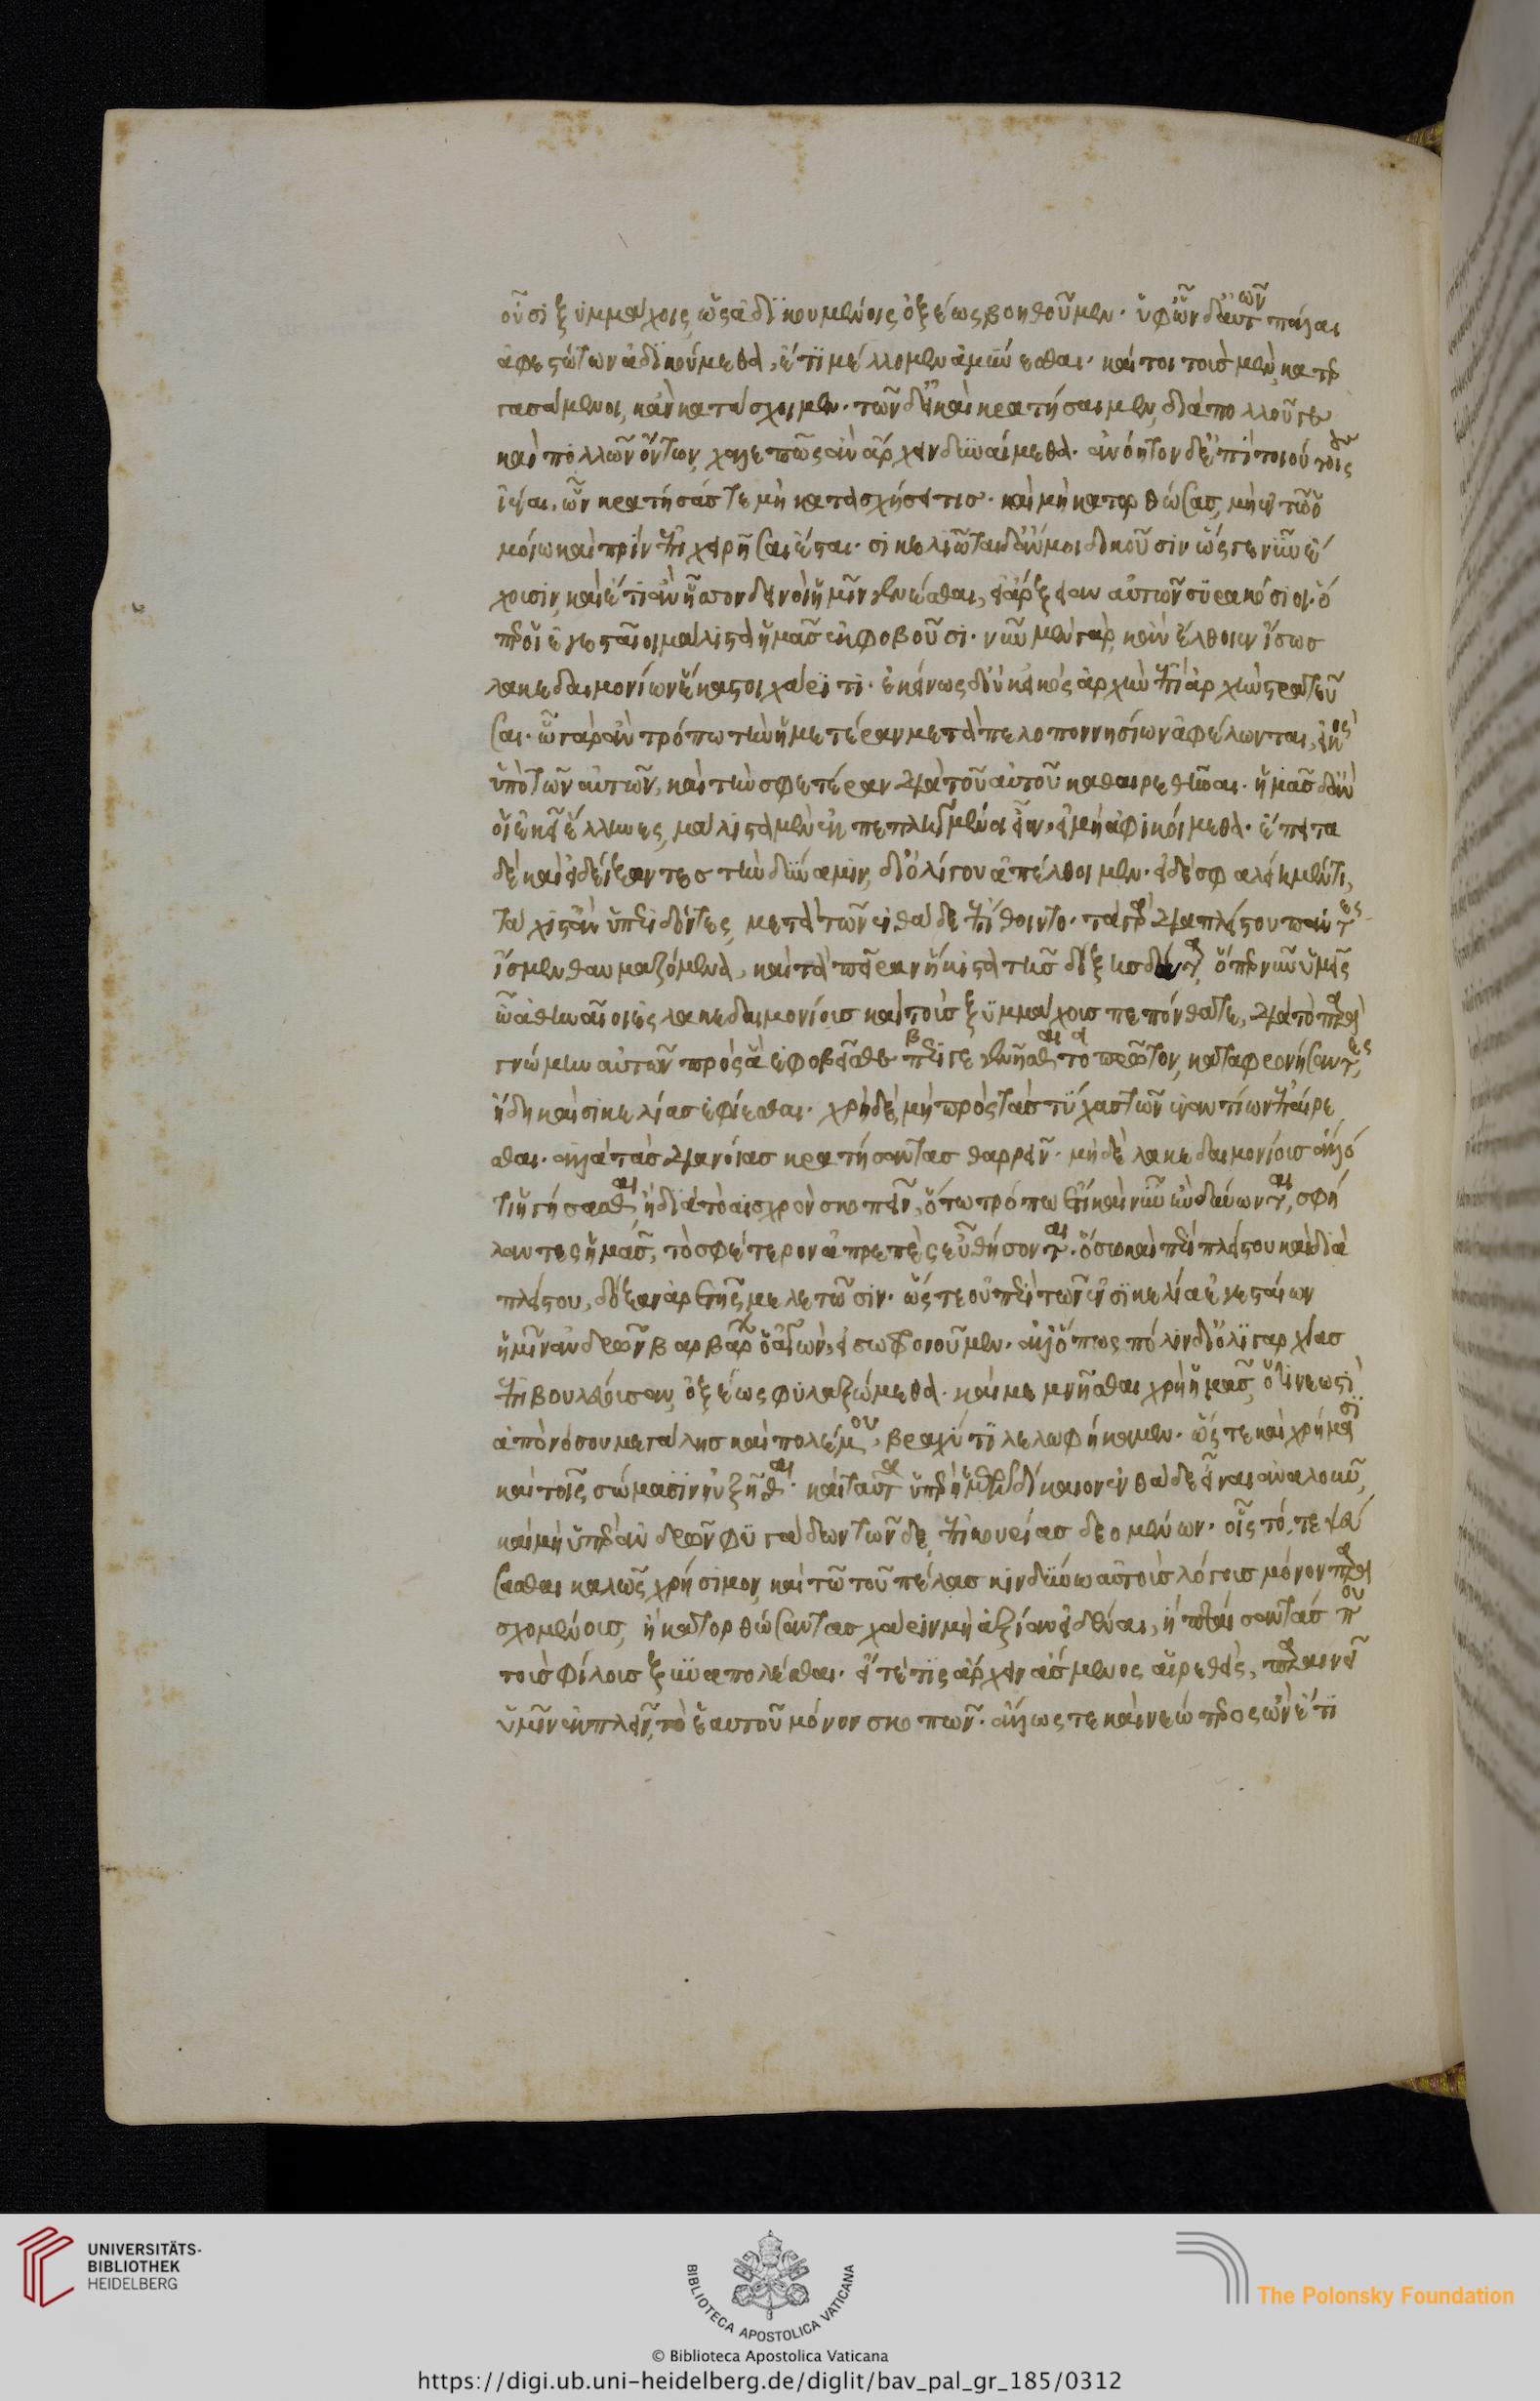 οὖσι ξυμμάχοις, ὡς ἀδικουμένοις ὀξέως βοηθοῦμεν· ὑφ' ὧν δ' αὐτῶν πάλαι
ἀφεστώτων ἀδικούμεθα, ἔτι μέλλομεν ἀμύνεσθαι· καίτοι τοὺς μὲν, κατερ
γασάμενοι, κἂν κατάσχοιμεν· τῶν δ' εἰ καὶ κρατήσαιμεν, διὰ πολλοῦ γε
καὶ πολλῶν ὄντων, χαλεπῶς ἂν ἄρχειν δυναίμεθα· ἀνόητον δ' ἐπὶ τοιούτους
ἰέναι, ὧν κρατήσας τε μὴ κατασχήσει τις· καὶ μὴ κατορθώσας, μὴ ἐν τῷ ὁ
μοίῳ καὶ πρὶν ἐπιχειρῆσαι ἔσται· σικελιῶται δ' ἄν μοι δοκοῦσιν ὥς γε νῦν ἔ
χουσιν, καὶ ἔτι ἂν ἧσσον δεινοὶ ἡμῖν γενέσθαι, εἰ ἄρξειαν αὐτῶν συρακόσιοι· ὅ
περ οἱ ἐγεσταῖοι μάλιστα ἡμᾶς ἐκφοβοῦσι· νῦν μὲν γὰρ, κἂν ἔλθοιεν ἴσως
λακεδαιμονίων ἕκαστοι χάριτι· ἐκείνως δ' οὐκ εἰκὸς ἀρχὴν ἐπὶ ἀρχὴν στρατεῦ
σαι· ᾧ γὰρ ἂν τρόπῳ τὴν ἡμετέραν μετὰ πελοποννησίων ἀφέλωνται, εἰκὸς
ὑπὸ τῶν αὐτῶν, καὶ τὴν σφετέραν διὰ τοῦ αὐτοῦ καθαιρεθῆναι· ἡμᾶς δ' ἂν
οἱ ἐκεῖ ἕλληνες, μάλιστα μὲν ἐκπεπληγμένοι εἶεν, εἰ μὴ ἀφικοίμεθα· ἔπειτα
δὲ καὶ εἰ δείξαντες τὴν δύναμιν, δι' ὀλίγου ἀπέλθοιμεν· εἰ δὲ σφαλείημέν τι,
τάχιστ' ἂν ὑπεριδόντες, μετὰ τῶν ἐνθάδε ἐπίθοιντο· τὰ γὰρ διὰ πλείστου πάντες
ἴσμεν θαυμαζόμενα, καὶ τὰ πεῖραν ἥκιστα τῆς δόξης δόντα, ὅπερ νῦν ὑμεῖς
ὦ ἀθηναῖοι ἐς λακεδαιμονίοις καὶ τοὺς ξυμμάχοις πεπόνθατε, διὰ τὸ παρὰ
γνώμην αὐτῶν πρὸς ἃ ἐφοβεῖσθε περιγεγενῆσθαι τὸ πρῶτον, καταφρονήσαντες,
ἤδη καὶ σικελίας ἐφίεσθαι· χρὴ δὲ, μὴ πρὸς τὰς τύχας τῶν ἐναντίων ἐπαίρε
σθαι· ἀλλὰ τὰς διανοίας κρατήσαντας θαρρεῖν· μὴ δὲ λακεδαιμονίοις ἄλλό
τι ἡγήσασθαι, ἢ διὰ τὸ αἰσχρὸν σκοπεῖν, ὅτῳ τρόπῳ ἔτι καὶ νῦν ἢν δύνωνται, σφή
λαντες ἡμᾶς, τὸ σφέτερον ἀπρεπὲς εὖ θήσονται· ὅσῳ καὶ περὶ πλείστου καὶ διὰ
πλείστου, δόξαν ἀρετῆς μελετῶσιν· ὥστε οὐ περὶ τῶν ἐν σικελίᾳ ἐγεσταίων
ἡμῖν ἀνδρῶν βαρβάρων ὁ ἀγών, εἰ σωφρονοῦμεν· ἀλλ' ὅπως πόλιν δι' ὀλιγαρχίας
ἐπιβουλεύουσαν, ὀξέως φυλαξώμεθα· καὶ μεμνῆσθαι χρὴ ἡμᾶς, ὅτι νεωστὶ
ἀπὸ νόσου μεγάλης καὶ πολέμου, βραχύ τι λελωφήκαμεν· ὥστε καὶ χρήμασι
καὶ τοῖς σώμασιν ηὐξῆσθαι· καὶ ταῦτα ὑπὲρ ἡμῶν δίκαιον ἐνθάδε εἶναι ἀναλοῦν,
καὶ μὴ ὑπὲρ ἀνδρῶν φυγάδων τῶνδε, ἐπικουρίας δεομένων· οἷς τό, τε ψεύ
σασθαι καλῶς χρήσιμον, καὶ τῷ τοῦ πέλας κινδύνῳ αὐτοὺς λόγους μόνον παρα
σχομένους, ἢ κατορθώσαντας χάριν μὴ ἀξίαν εἰδέναι, ἢ πταίσαντάς που
τοὺς φίλους ξυναπολέσθαι· εἴ τέ τις ἄρχειν ἄσμενος αἱρεθεὶς, παραινεῖ
ὑμῖν ἐκπλεῖν, τὸ ἑαυτοῦ μόνον σκοπῶν· ἄλλως τε καὶ νεώτερος ὢν ἔτι
UNIVERSITÄTS-
BIBLIOTHEK
HEIDELBERG
BIBLIOTECA APOSTOLICA VATICANA
The Polonsky Foundation
© Biblioteca Apostolica Vaticana
https://digi.ub.uni-heidelberg.de/diglit/bav_pal_gr_185/0312